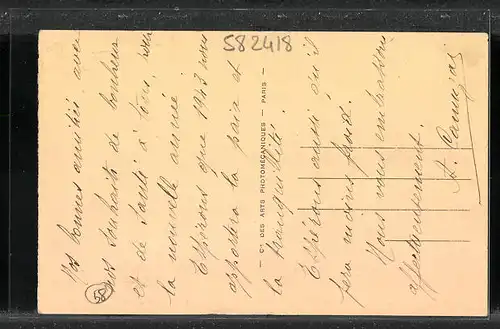 582418
Nos bonnes amitiés, avec
nos souhaits de bonheur
et de santé à tous, pour
la nouvelle année
Espérons que 1943 nous
apportera la paix et
la tranquillité.
Espérons aussi qu'il
fera moins froid.
Nous vous embrassons
affectueusement.
Cie DES ARTS PHOTOMÉCANIQUES — PARIS —
58